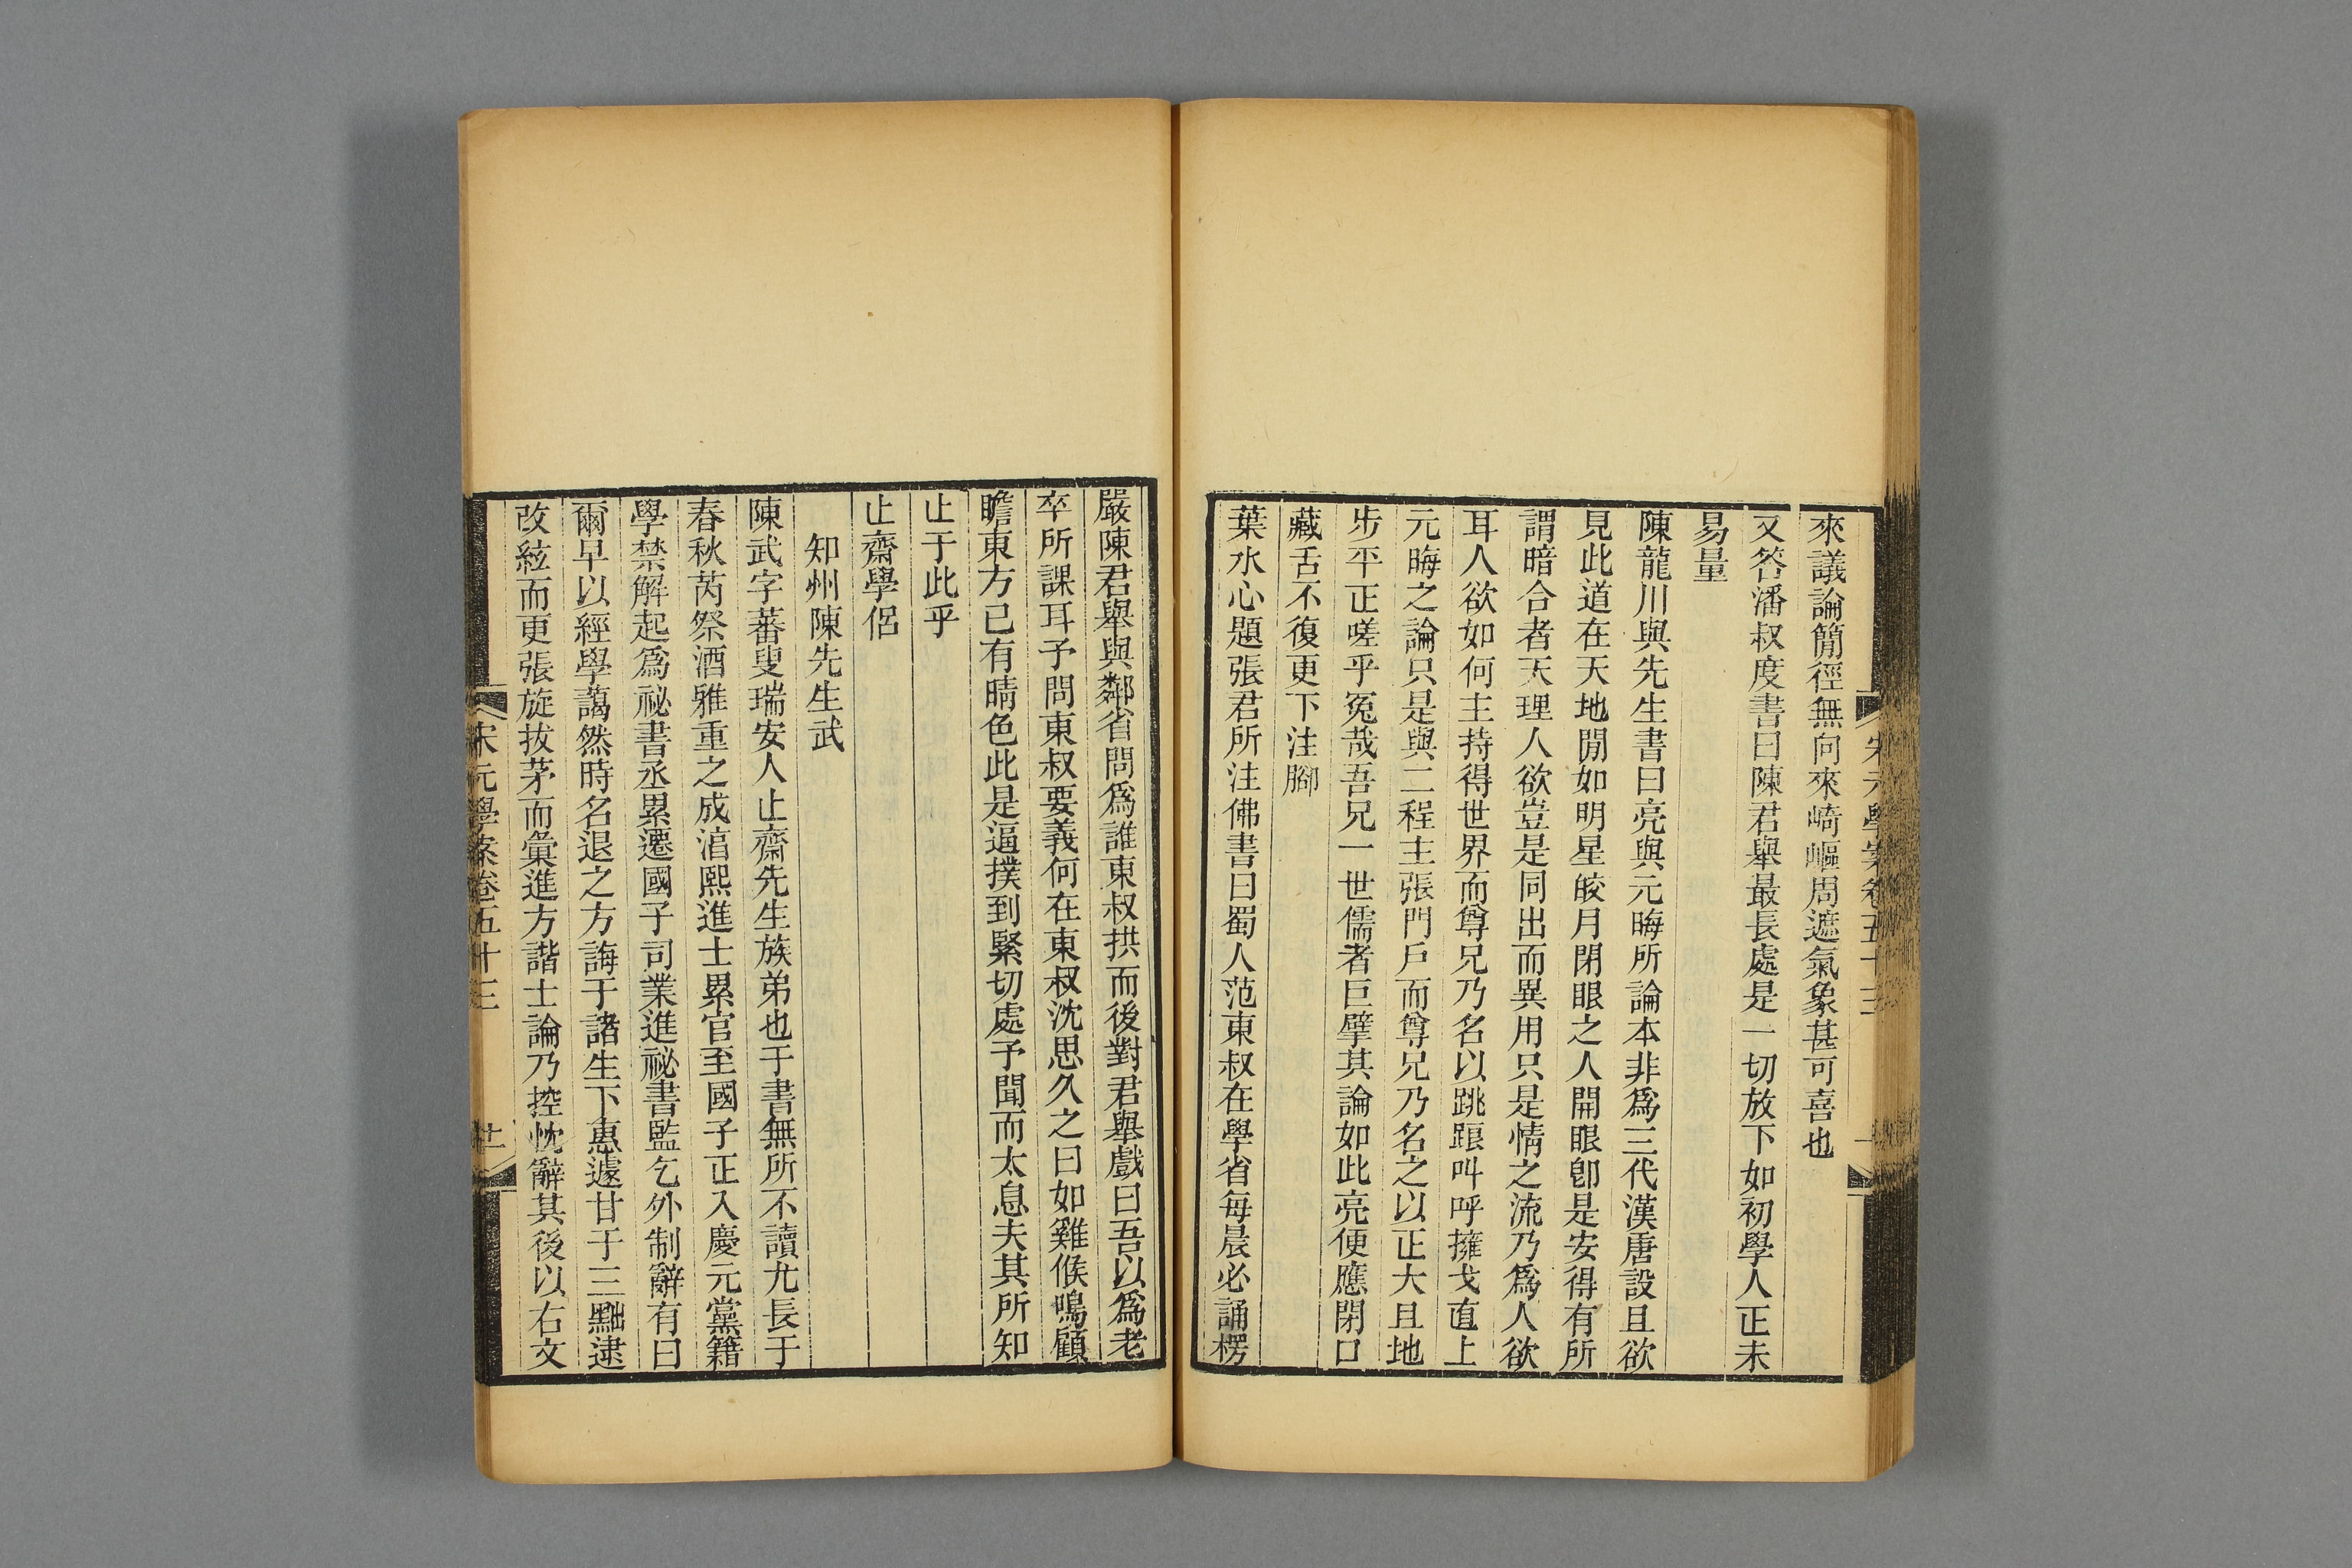 來議論簡徑無向來崎嶇周遮氣象甚可喜也
又答潘叔度書曰陳君舉最長處是一切放下如初學人正未
易量
陳龍川與先生書曰亮與元晦所論本非爲三代漢唐設且欲
見此道在天地閒如明星皎月閉眼之人開眼卽是安得有所
謂暗合者天理人欲豈是同出而異用只是情之流乃爲人欲
耳人欲如何主持得世界而尊兄乃名以跳踉叫呼擁戈直上
元晦之論只是與二程主張門戶而尊兄乃名之以正大且地
步平正嗟乎冤哉吾兄一世儒者巨擘其論如此亮便應閉口
藏舌不復更下注腳
葉水心題張君所注佛書曰蜀人范東叔在學省每晨必誦楞
嚴陳君舉與鄰省問爲誰東叔拱而後對君舉戲曰吾以爲老
卒所課耳予問東叔要義何在東叔沈思久之曰如雞候鳴顧
瞻東方已有晴色此是逼撲到緊切處予聞而太息夫其所知
止于此乎
止齋學侶
知州陳先生武
陳武字蕃叟瑞安人止齋先生族弟也于書無所不讀尤長于
春秋芮祭酒雅重之成淯熙進士累官至國子正入慶元黨籍
學禁解起爲祕書丞累遷國子司業進祕書監乞外制辭有曰
爾早以經學藹然時名退之方誨于諸生下惠遽甘于三黜逮
改絃而更張旋拔茅而彙進方諧士論乃控忱辭其後以右文
宋元學案卷五十三
廿